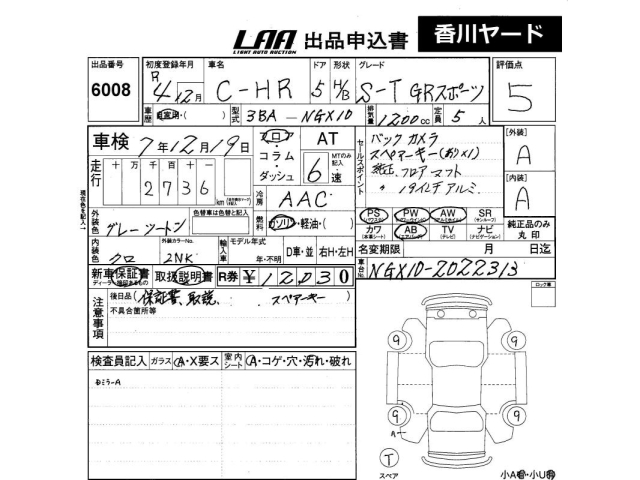 LAA 出品申込書 香川ヤード
LIGHT AUTO AUCTION
出品番号 初度登録年月 車名 ドア 形状 グレード 評価点
6008 R4年12月 C-HR 5 H/B S-T GRスポーツ 5
車歴 自家用・( ) 型式 3BA-NGX10 排気量 1200cc 定員 5人
車検 7年12月19日 フロア・コラム・ダッシュ AT 6速 MTのみ記入
セールスポイント バックカメラ
スペアーキー(あり×1)
純正フロアマット
〃 19インチアルミ
[外装] A
[内装] A
走行 十 万 千 百 十 一
2736 km
冷房 AAC
PS (パワステ) PW (パワーウインドウ) AW (アルミホイル) SR (サンルーフ)
カワ (本革シート) AB (エアバッグ) TV (テレビ) ナビ (ナビゲーション)
純正品のみ丸印
現在色を記入
外装色 グレーツートン 色替車は色替と記入 燃料 ガソリン・軽油・( )
内装色 クロ 外装カラーNo. 2NK 輸入車 モデル年式 年・不明 D車・並 右H・左H
名変期限 月 日迄
新車保証書 取扱説明書 R券 ¥12030
車台No. NGX10-2022313
ロック車
注意事項 後日品(保証書、取説、 スペアーキー )
不具合箇所等
検査員記入 ガラス A・X要ス 室内シート A・コゲ・穴・汚れ・破れ
Dミラ-A
9 9
9 9
A
T
スペア
小A・小U